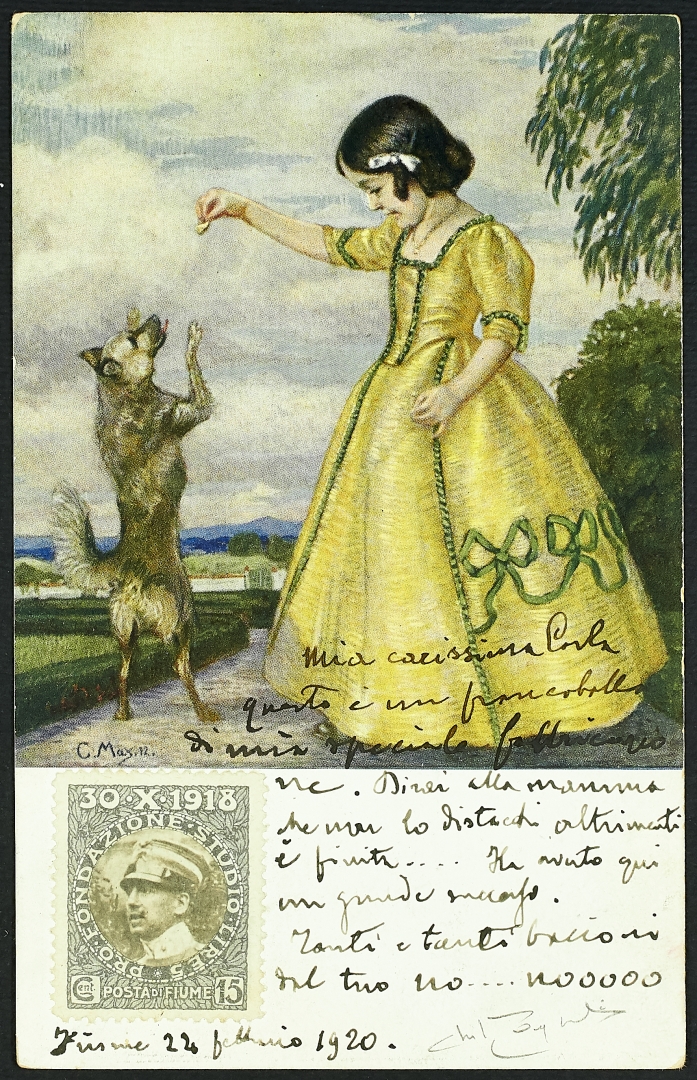 Mia carissima Carla
questo è un francobollo
di mia speciale fabbricazio
C. Max. 12.
ne. Dirai alla mamma
che non lo distacchi altrimenti
è finita.... Ha avuto qui
un grande successo.
Tanti e tanti bacioni
dal tuo no.... nooooo
30·X·1918
PRO·FONDAZIONE·STUDIO·LIRE·5
Cent. POSTA DI FIUME 15
Fiume 24 febbraio 1920.